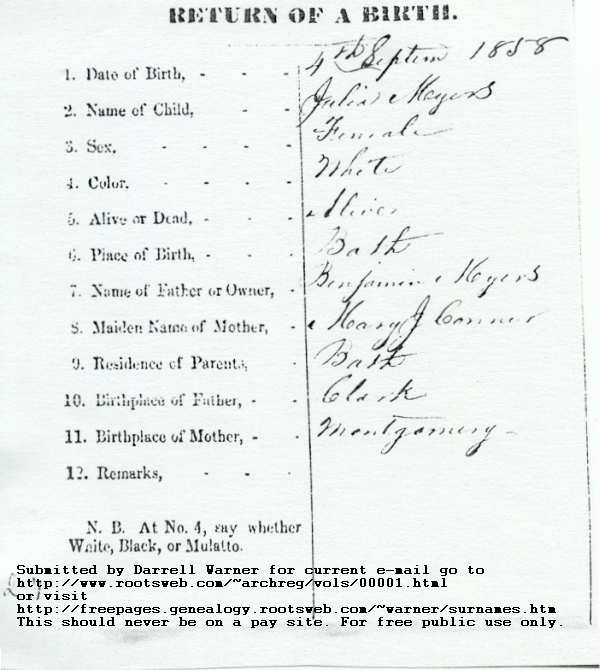 RETURN OF A BIRTH.
1. Date of Birth, - - - 4th Septem 1858
2. Name of Child, - - Julia Meyers
3. Sex. - - - - Female
4. Color. - - - - White
5. Alive or Dead, - - - Alive
6. Place of Birth, - - - Bath
7. Name of Father or Owner, - Benjamin Meyers
8. Maiden Name of Mother, - Mary J Conner
9. Residence of Parents, - Bath
10. Birthplace of Father, - - Clark
11. Birthplace of Mother, - - Montgomery
12. Remarks, - - -
N. B. At No. 4, say whether
White, Black, or Mulatto.
Submitted by Darrell Warner for current e-mail go to
http://www.rootsweb.com/~archreg/vols/00001.html
or visit
http://freepages.genealogy.rootsweb.com/~warner/surnames.htm
This should never be on a pay site. For free public use only.